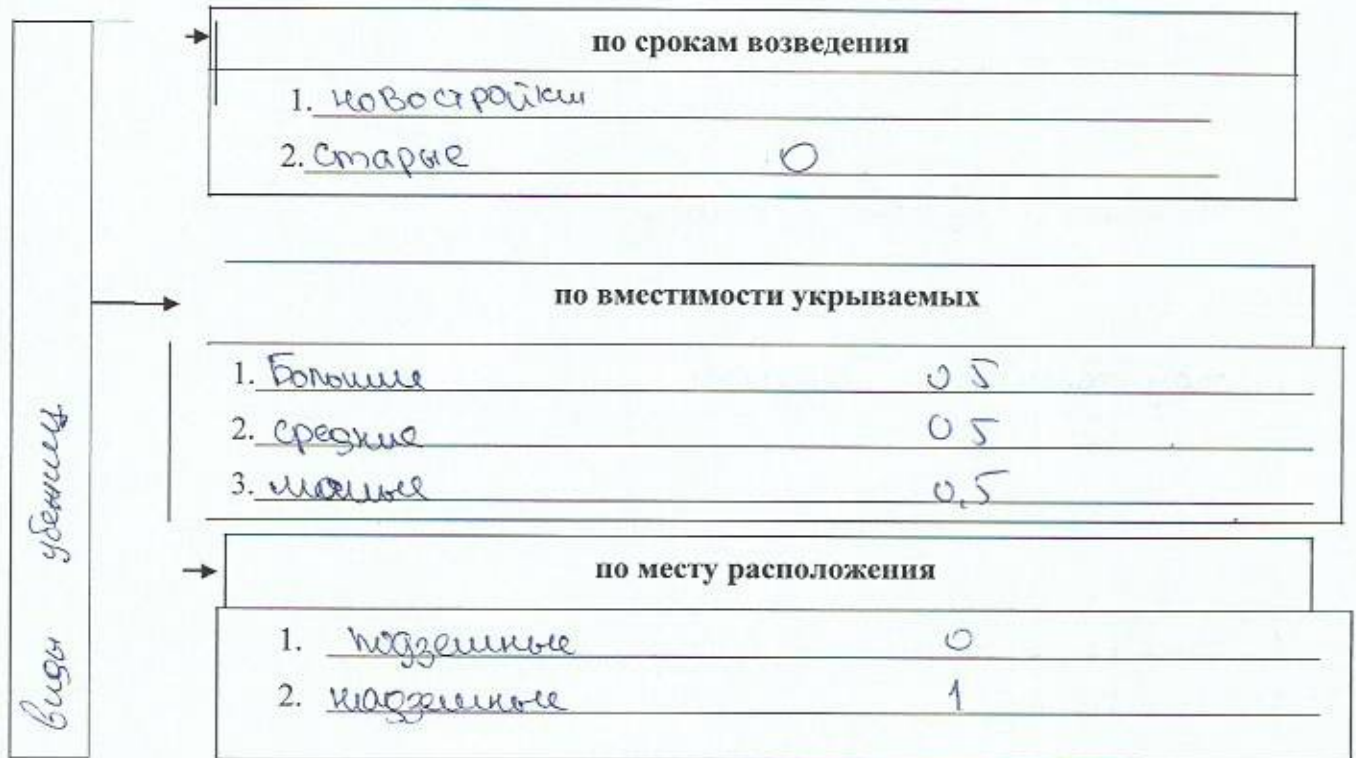 виды убежищ
по срокам возведения
1. новостройки
2. старые 0
по вместимости укрываемых
1. Большие 0 5
2. средние 0 5
3. малые 0,5
по месту расположения
1. подземные 0
2. надземные 1